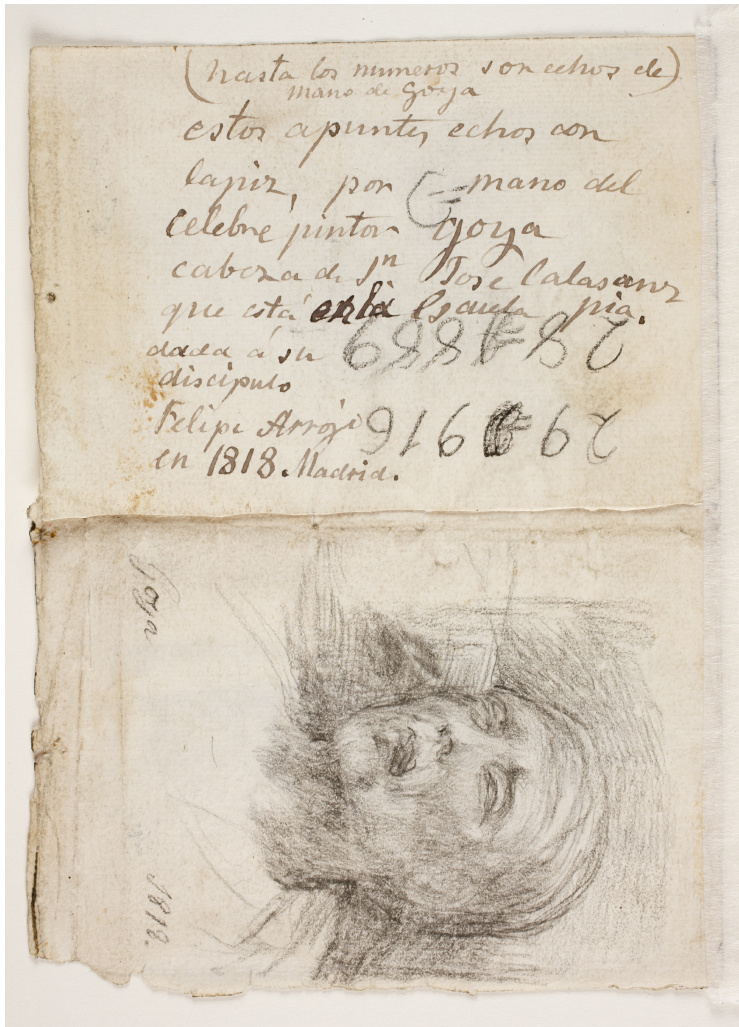 (hasta los numeros son echos de)
mano de Goya
estos apuntes echos con
lapiz, por mano del
celebre pintor Goya
cabeza de Sn José Calasanz
que está en la Escuela pia.
dada á su
discipulo
Felipe Arrojo
en 1818. Madrid.
Goya
1818.